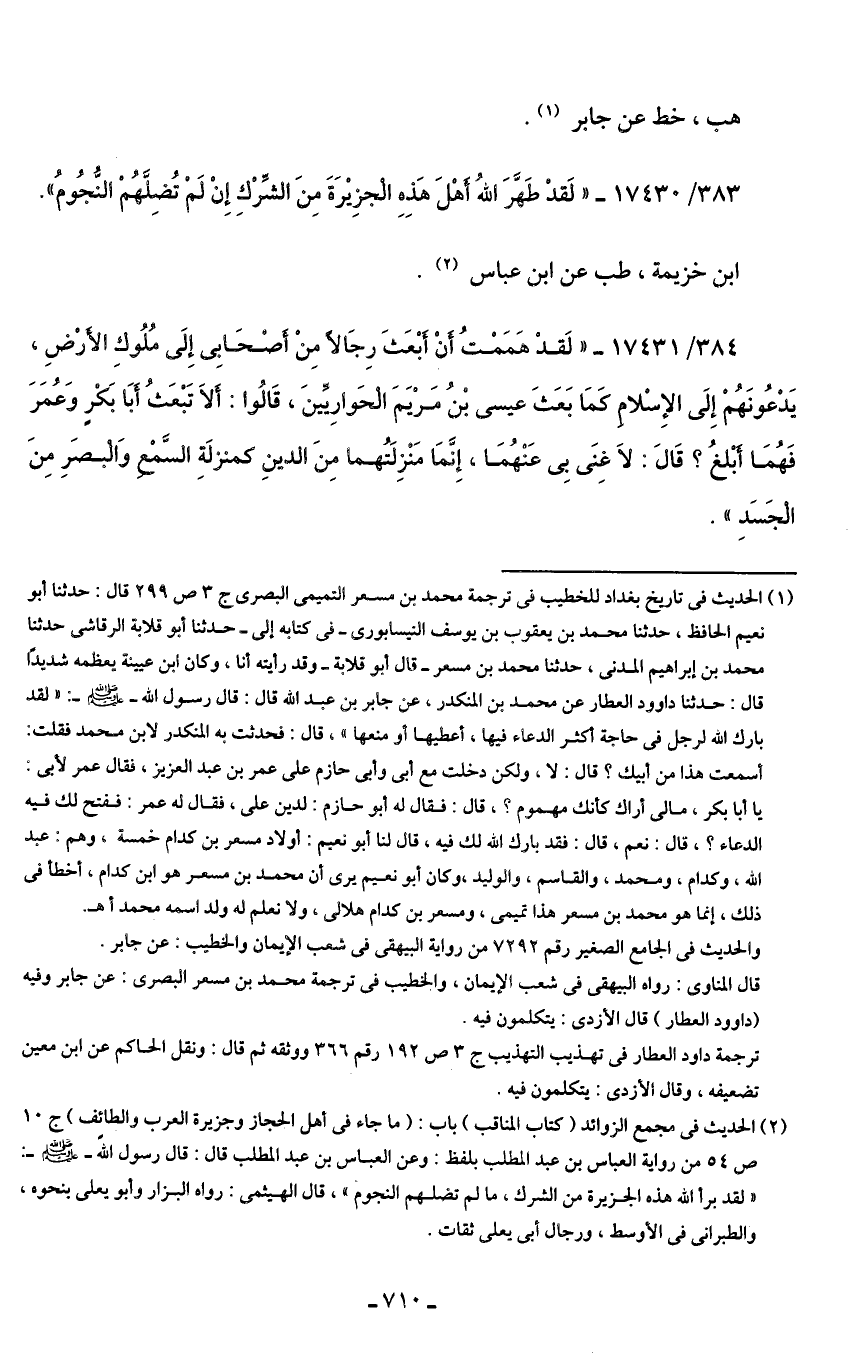 هب ، خط عن جابر (١) .
٣٨٣/ ١٧٤٣٠ ـ « لَقدْ طَهَّرَ اللهُ أَهْلَ هَذِهِ الْجزِيْرَةَ مِنَ الشِّرْكِ إِنْ لَمْ تُضِلَّهُمْ النُّجُومُ».
ابن خزيمة ، طب عن ابن عباس (٢) .
٣٨٤/ ١٧٤٣١ ـ « لَقـدْ هَمَمْـتُ أَنْ أَبْعَثَ رِجَالاً مِنْ أَصْـحَـابِى إِلَى مُلُوكِ الأَرْضِ ،
يَدْعُونَهُمْ إِلَى الإِسْلَامِ كَمَا بَعَثَ عيسى بْنُ مَـرْيَمَ الحَوارِيِّينَ ، قَالُوا : أَلاَ تَبْعَثُ أَبَا بَكْرٍ وَعُمَرَ
فَهُمَـا أَبْلغُ ؟ قَالَ : لاَ غِنَى بِى عَنْهُمَـا ، إِنَّمَا مَنْزِلَتُـهـما مِنَ الدينِ كمنزلَةِ السَّمْعِ وَالْبـصَرِ مِنَ
الْجَسَدِ » .
(١) الحديث فى تاريخ بغداد للخطيب فى ترجمة محمد بن مسـعر التميمى البصرى ج ٣ ص ٢٩٩ قال : حدثنا أبو
نعيم الحافظ ، حدثنا محـمد بن يعقوب بن يوسف النيسابورى ـ فى كتابه إلى ـ حـدثنا أبو قلابة الرقاشى حدثنا
محمد بن إبراهيم المـدنى ، حدثنا محمد بن مسعر ـ قال أبو قلابة ـ وقد رأيته أنا ، وكان ابن عيينة يعظمه شديدًا
قال : حـدثنا داوود العطار عن محمـد بن المنكدر ، عن جابر بن عبـد الله قال : قال رسـول الله ـ ﷺ ـ : « لقد
بارك الله لرجل فى حاجة أكثـر الدعاء فيها ، أعطيهـا أو منعها » ، قال : فحدثت به المنكدر لابن مـحمد فقلت:
أسمعت هذا من أبيك ؟ قال : لا ، ولكن دخلت مع أبى وأبى حازم على عمر بن عبد العزيز ، فقال عمر لأبى :
يا أبا بكر ، مـالى أراك كأنك مهـموم ؟ ، قال : فـقال له أبو حـازم : لدين على ، فقـال له عمر : فـفتح لك فيه
الدعاء ؟ ، قال : نعم ، قال : فقد بارك الله لك فيه ، قال لنا أبو نعيم : أولاد مسعر بن كدام خمسة ، وهم : عبد
الله ، وكدام ، ومـحمد ، والقـاسم ، والوليد ،وكان أبو نعـيم يرى أن محمـد بن مسعـر هو ابن كدام ، أخطأ فى
ذلك ، إنما هو محمد بن مسعر هذا تميمى ، ومسعر بن كدام هلالى ، ولا نعلم له ولد اسمه محمد أ هـ.
والحديث فى الجامع الصغير رقم ٧٢٩٢ من رواية البيهقى فى شعب الإيمان والخطيب : عن جابر .
قال المناوى : رواه البيهقى فى شعب الإيمان ، والخطيب فى ترجمة محـمد بن مسعر البصرى : عن جابر وفيه
(داوود العطار ) قال الأزدى : يتكلمون فيه .
ترجمة داود العطار فى تهـذيب التهذيب ج ٣ ص ١٩٢ رقم ٣٦٦ ووثقه ثم قال : ونقل الحـاكم عن ابن معين
تضعيفه ، وقال الأزدى : يتكلمون فيه .
(٢) الحديث فى مجمع الزوائد ( كتاب المناقب ) باب : ( ما جاء فى أهل الحجاز وجزيرة العرب والطائف ) ج ١٠
ص ٥٤ من رواية العباس بن عبد المطلب بلفظ : وعن العباس بن عبد المطلب قال : قال رسول الله ـ ﷺ ـ:
« لقد برأ الله هذه الجـزيرة من الشرك ، ما لم تضلـهم النجوم » ، قال الهـيثمى : رواه البـزار وأبو يعلى بنحوه ،
والطبرانى فى الأوسط ، ورجال أبى يعلى ثقات .
ـ ٧١٠ ـ